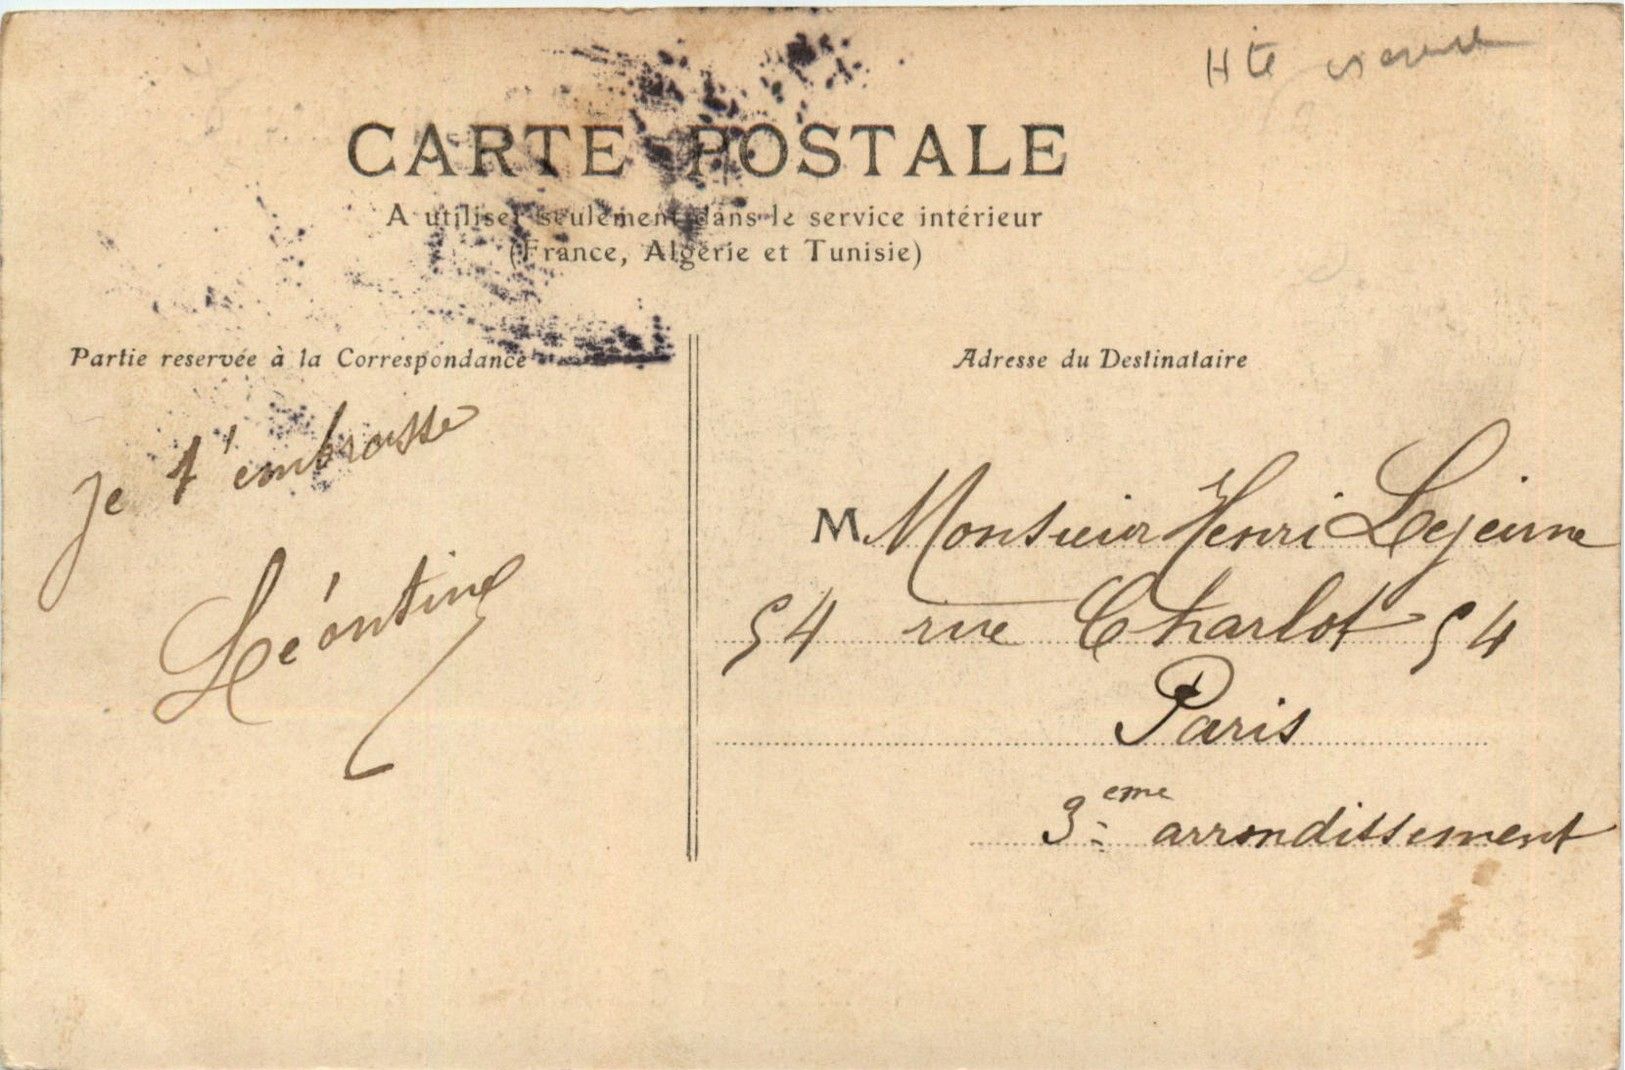 Hte
CARTE POSTALE
A utiliser seulement dans le service intérieur
(France, Algérie et Tunisie)
Partie reservée à la Correspondance
Je t'embrasse
Léontine
Adresse du Destinataire
M Monsieur Henri Lejeune
54 rue Charlot 54
Paris
3eme arrondissement